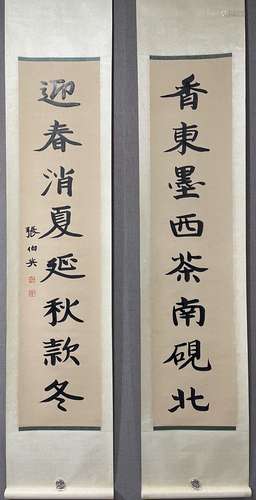 香東墨西茶南硯北
迎春消夏延秋款冬
張伯英